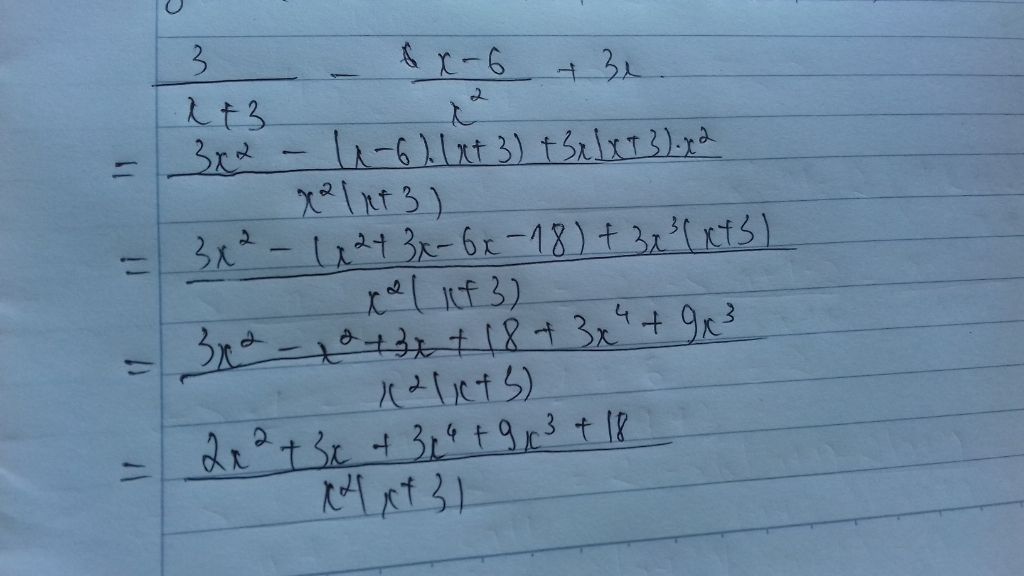 3/(x+3) - (x-6)/x² + 3x
= (3x² - (x-6).(x+3) + 3x(x+3).x²)/(x²(x+3))
= (3x² - (x²+3x-6x-18) + 3x³(x+3))/(x²(x+3))
= (3x² - x² + 3x + 18 + 3x⁴ + 9x³)/(x²(x+3))
= (2x² + 3x + 3x⁴ + 9x³ + 18)/(x²(x+3))